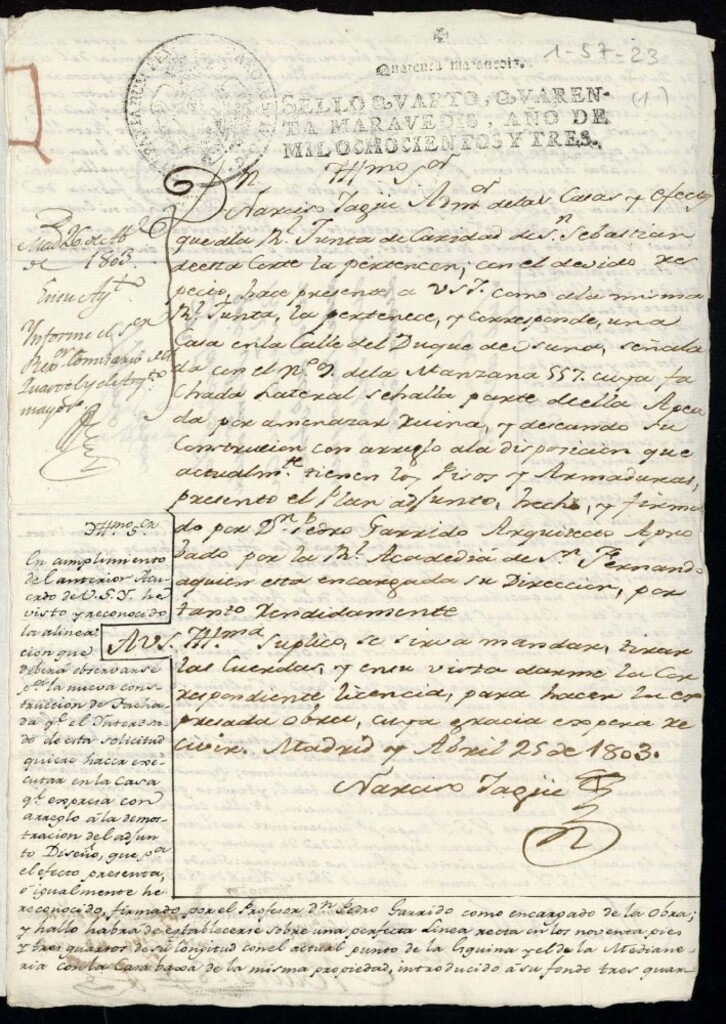 1-57-23
(1)
Quarenta maravedis.
SELLO QVARTO, QVAREN-
TA MARAVEDIS, AÑO DE
MIL OCHOCIENTOS Y TRES.
Yllmo Sor
Dn Narciso Tagüe Admor de las Casas y efectos
que a la Rl. Junta de Caridad de Sn. Sebastian
de esta Corte la pertenecen; con el devido res
peto, hace presente a VSY. como a la misma
Rl. Junta, la pertenece, y corresponde, una
Casa en la Calle del Duque de osuna, señala
da con el no. 9. de la Manzana 557. cuya fa
chada Lateral se halla parte de ella Apea
da por amenazar Ruina, y deseando su
Construcion con arreglo a la disposicion que
actualmte. tienen los Pisos y Armaduras,
presento el Plan adjunto, hecho, y firma
do por Dn. Pedro Garrido Arquitecto Apro
bado por la Rl. Academia de Sn. Fernando
a quien esta encargada su Direccion, por
tanto Rendidamente
A VS. Yllma Suplico, se sirva mandar, tirar
las Cuerdas, y en su vista darme la Cor
respondiente licencia, para hacer la ex
presada obra, cuya gracia espera re
civir. Madrid y Abril 25 de 1803.
Narciso Tagüe
Mad 26 de Ab
de 1803.
En su Ayto
Informe el Sor
Rexor Comisario del
Quartel y el Arqto
mayor
Yllmo. Sor
En cumplimiento
del anterior Acu
erdo de V.S.Y. he
visto y reconocido
la alinea
cion que
deberá observarse
en la nueva cons
truccion de Facha
da qe. el Interesa
do de esta solicitud
quiere hacer exe
cutar en la Casa
qe. expresa con
arreglo á la demos
tracion del adjun
to Diseño, que pa
el efecto presenta,
é igualmente he
reconocido, firmado por el Profesor Dn. Pedro Garrido como encargado de la Obra;
y hallo habrá de establecerse sobre una perfecta Linea recta en los noventa pies
y tres quartos de su longitud con el actual punto de la Esquina y el de la Mediane-
ria con la Casa baxa de la misma propiedad, introducido á su fondo tres quar-